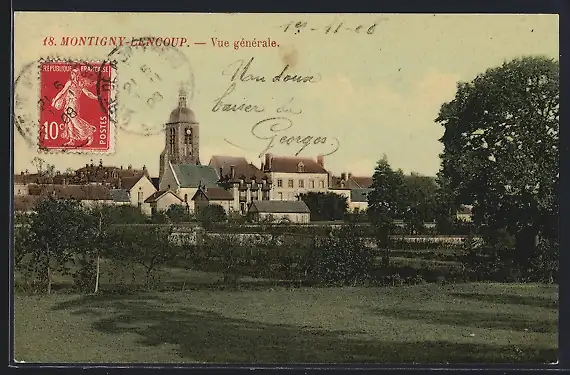 18. MONTIGNY-LENCOUP. — Vue générale.
REPUBLIQUE FRANÇAISE
10c
POSTES
Un doux
baiser de
Georges